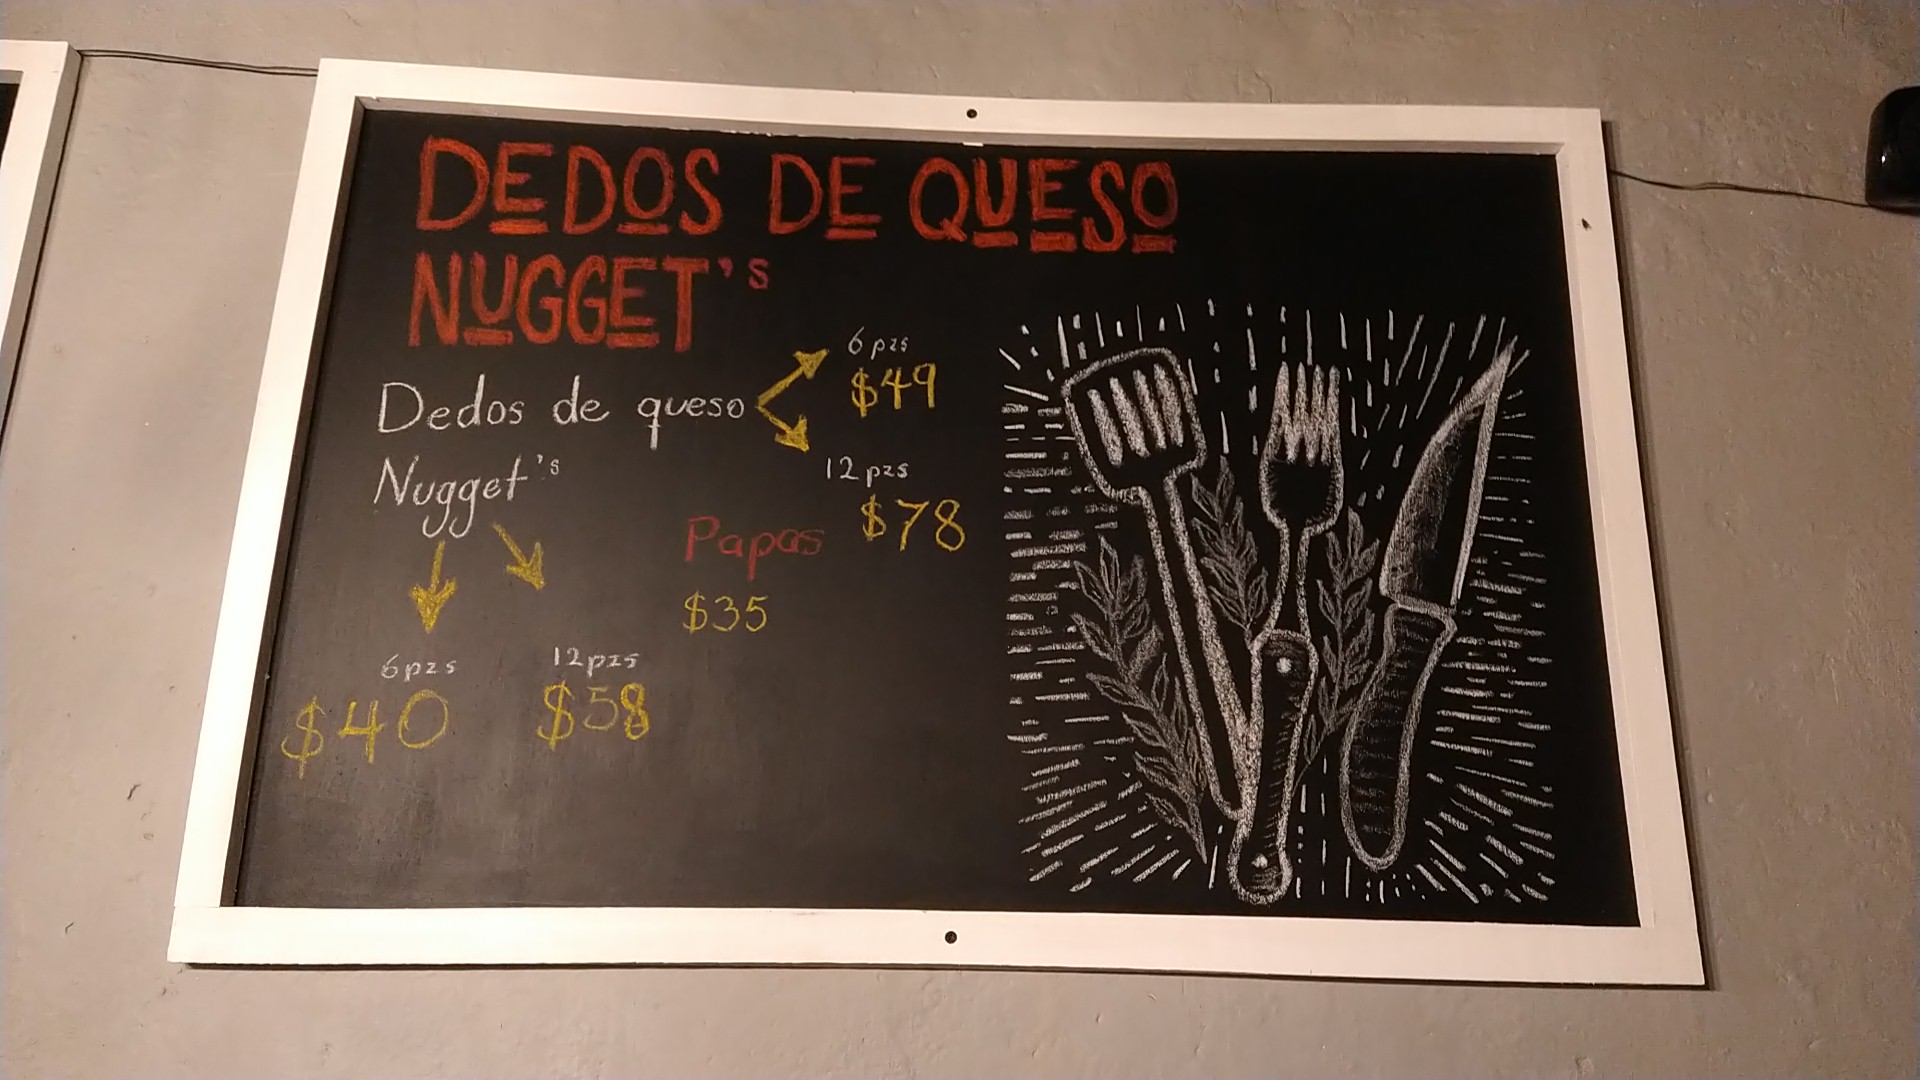 DEDOS DE QUESO
NUGGET'S
Dedos de queso
6 pzs
$49
12 pzs
$78
Nugget's
6pzs
$40
12pzs
$58
Papas
$35